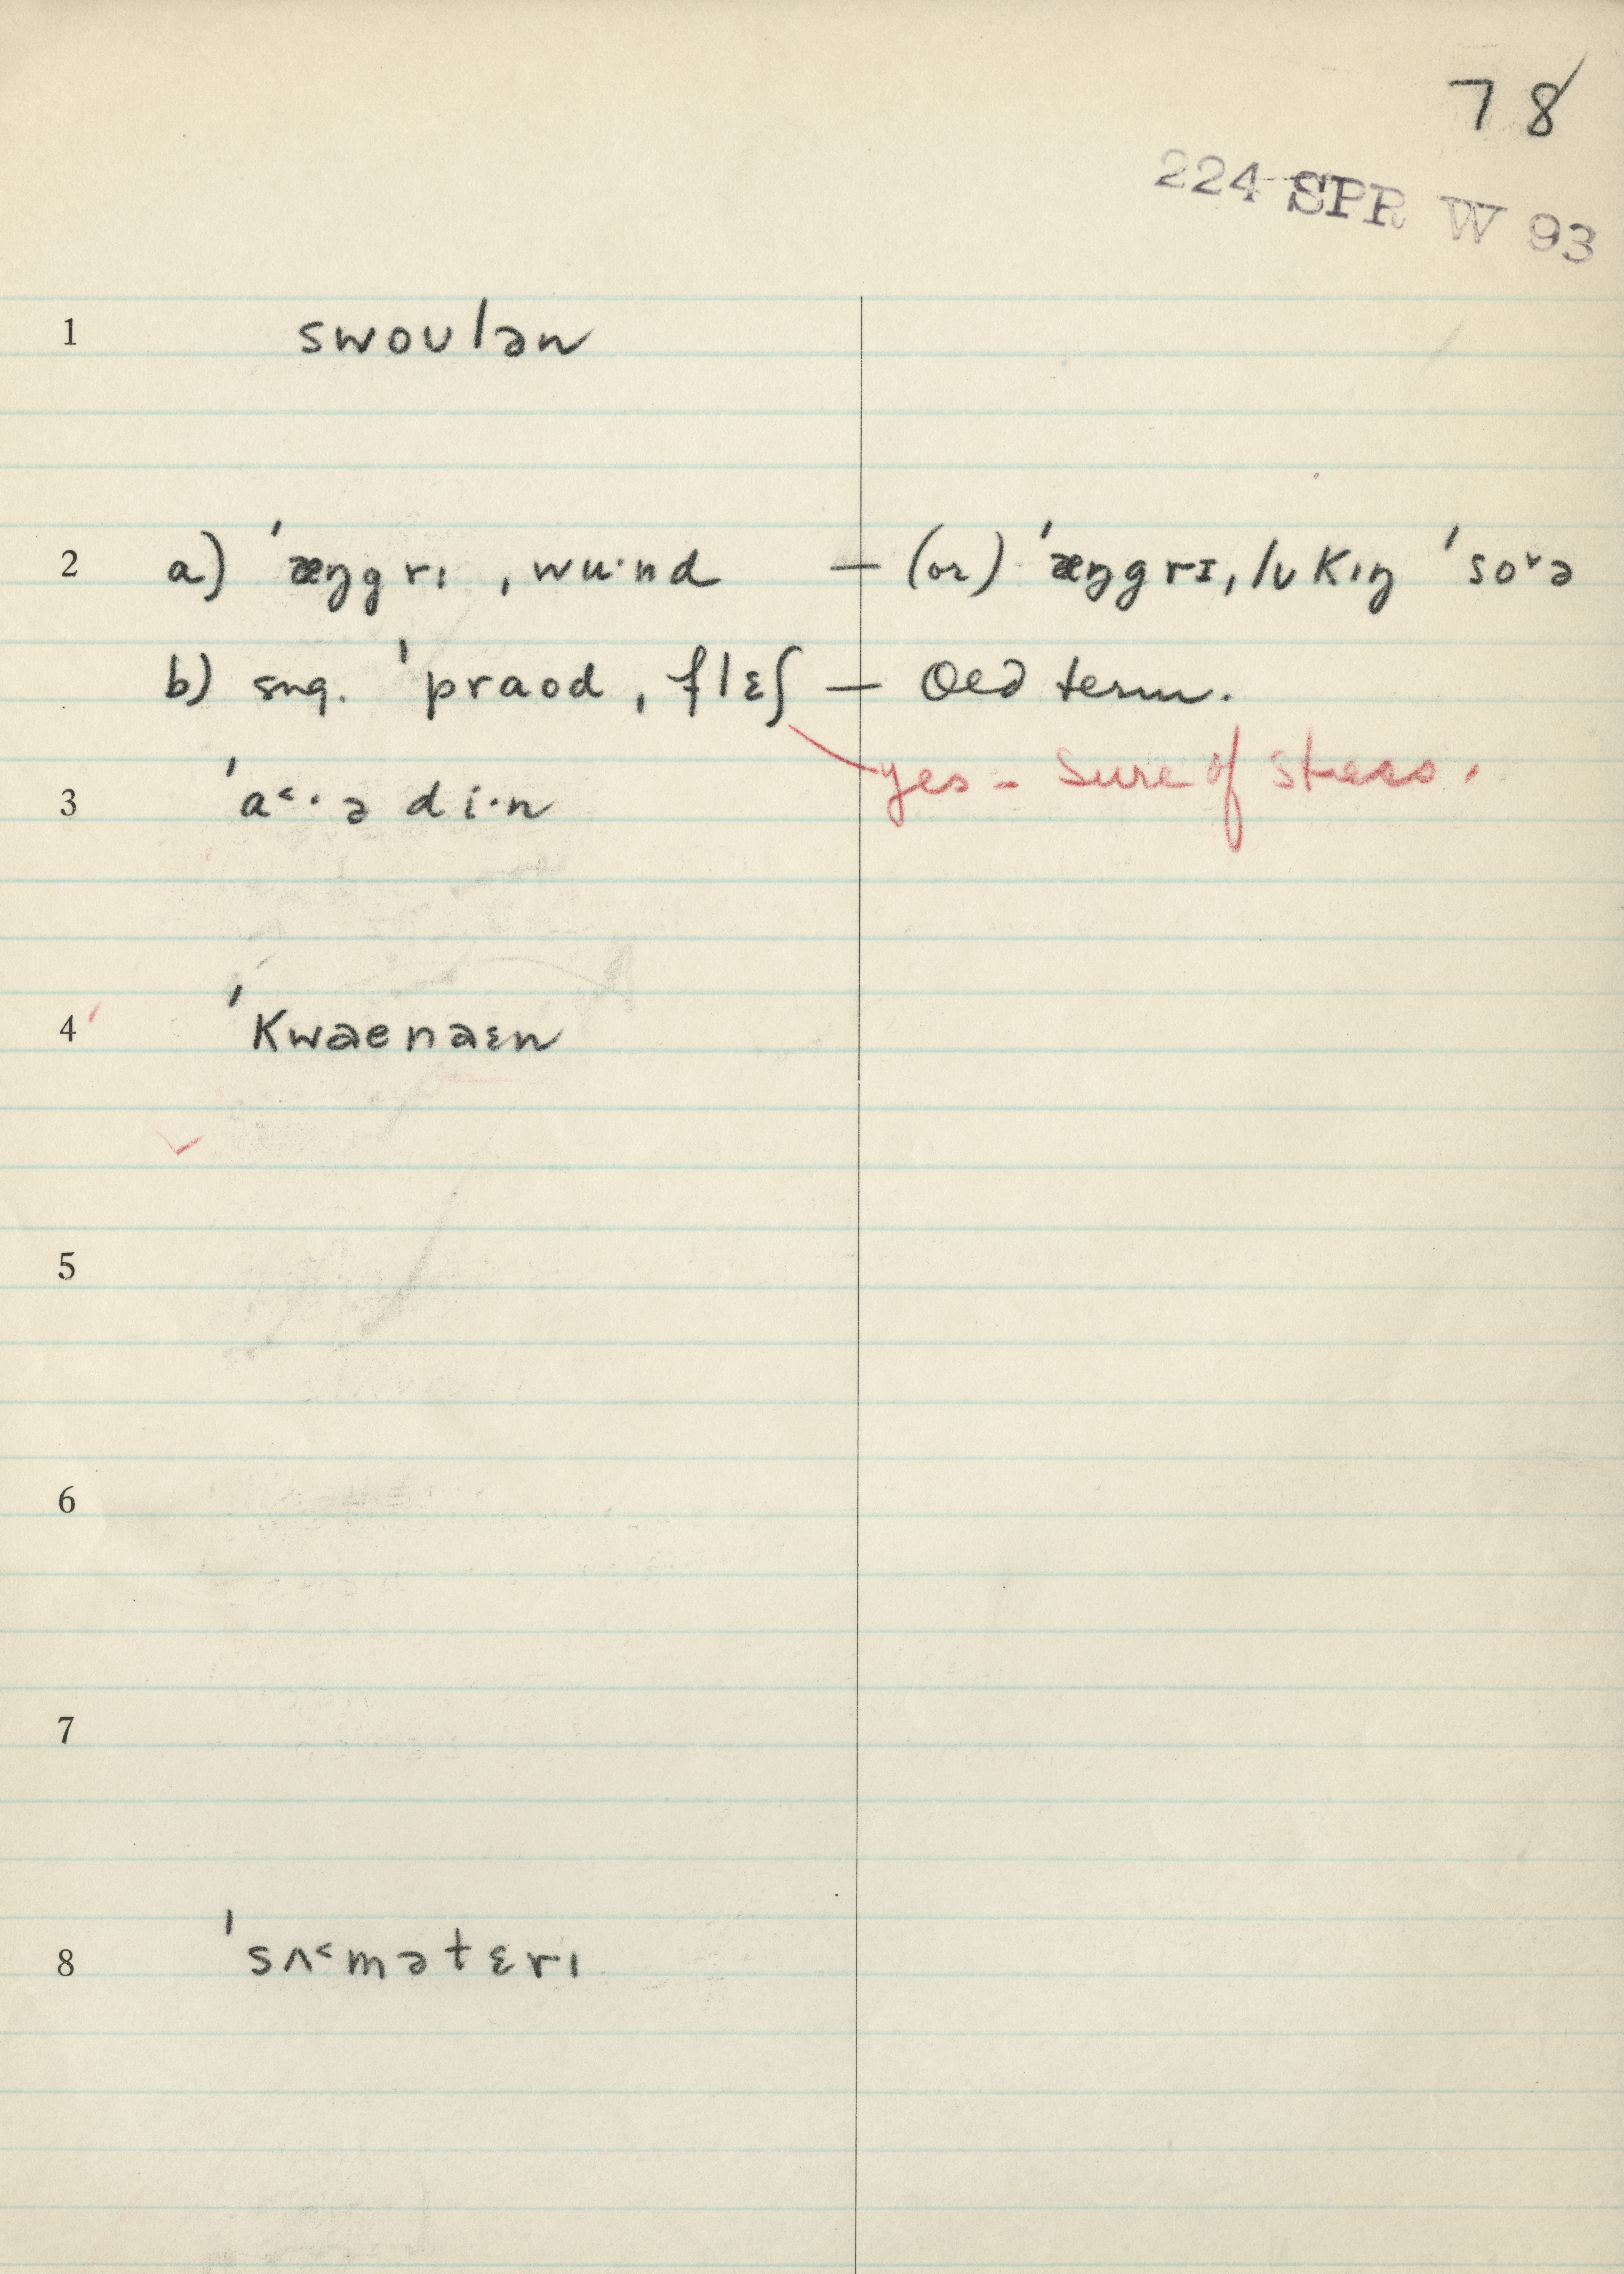 78
224 SPR W 93
1 swoʊlən
2 a) ˈæŋgrɪ ˌwu·nd — (or) ˈæŋgrɪ ˌlʊkɪŋ ˈso˅ə
b) sug. ˈpraʊd ˌflɛʃ — Old term.
yes – Sure of stress.
3 ˈa˂·ədi·n
4 ˈkwaenaɛn
5
6
7
8 ˈsʌ˂mətɛrɪ